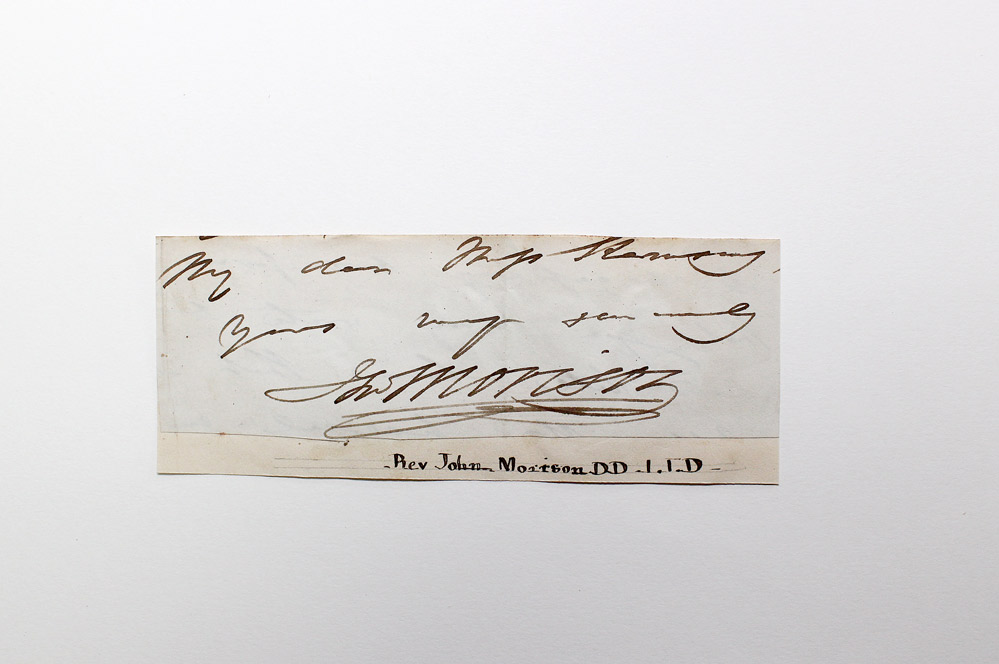 My dear Miss
yours very sincerely
Jno Morison
Rev John Morison DD L.L.D